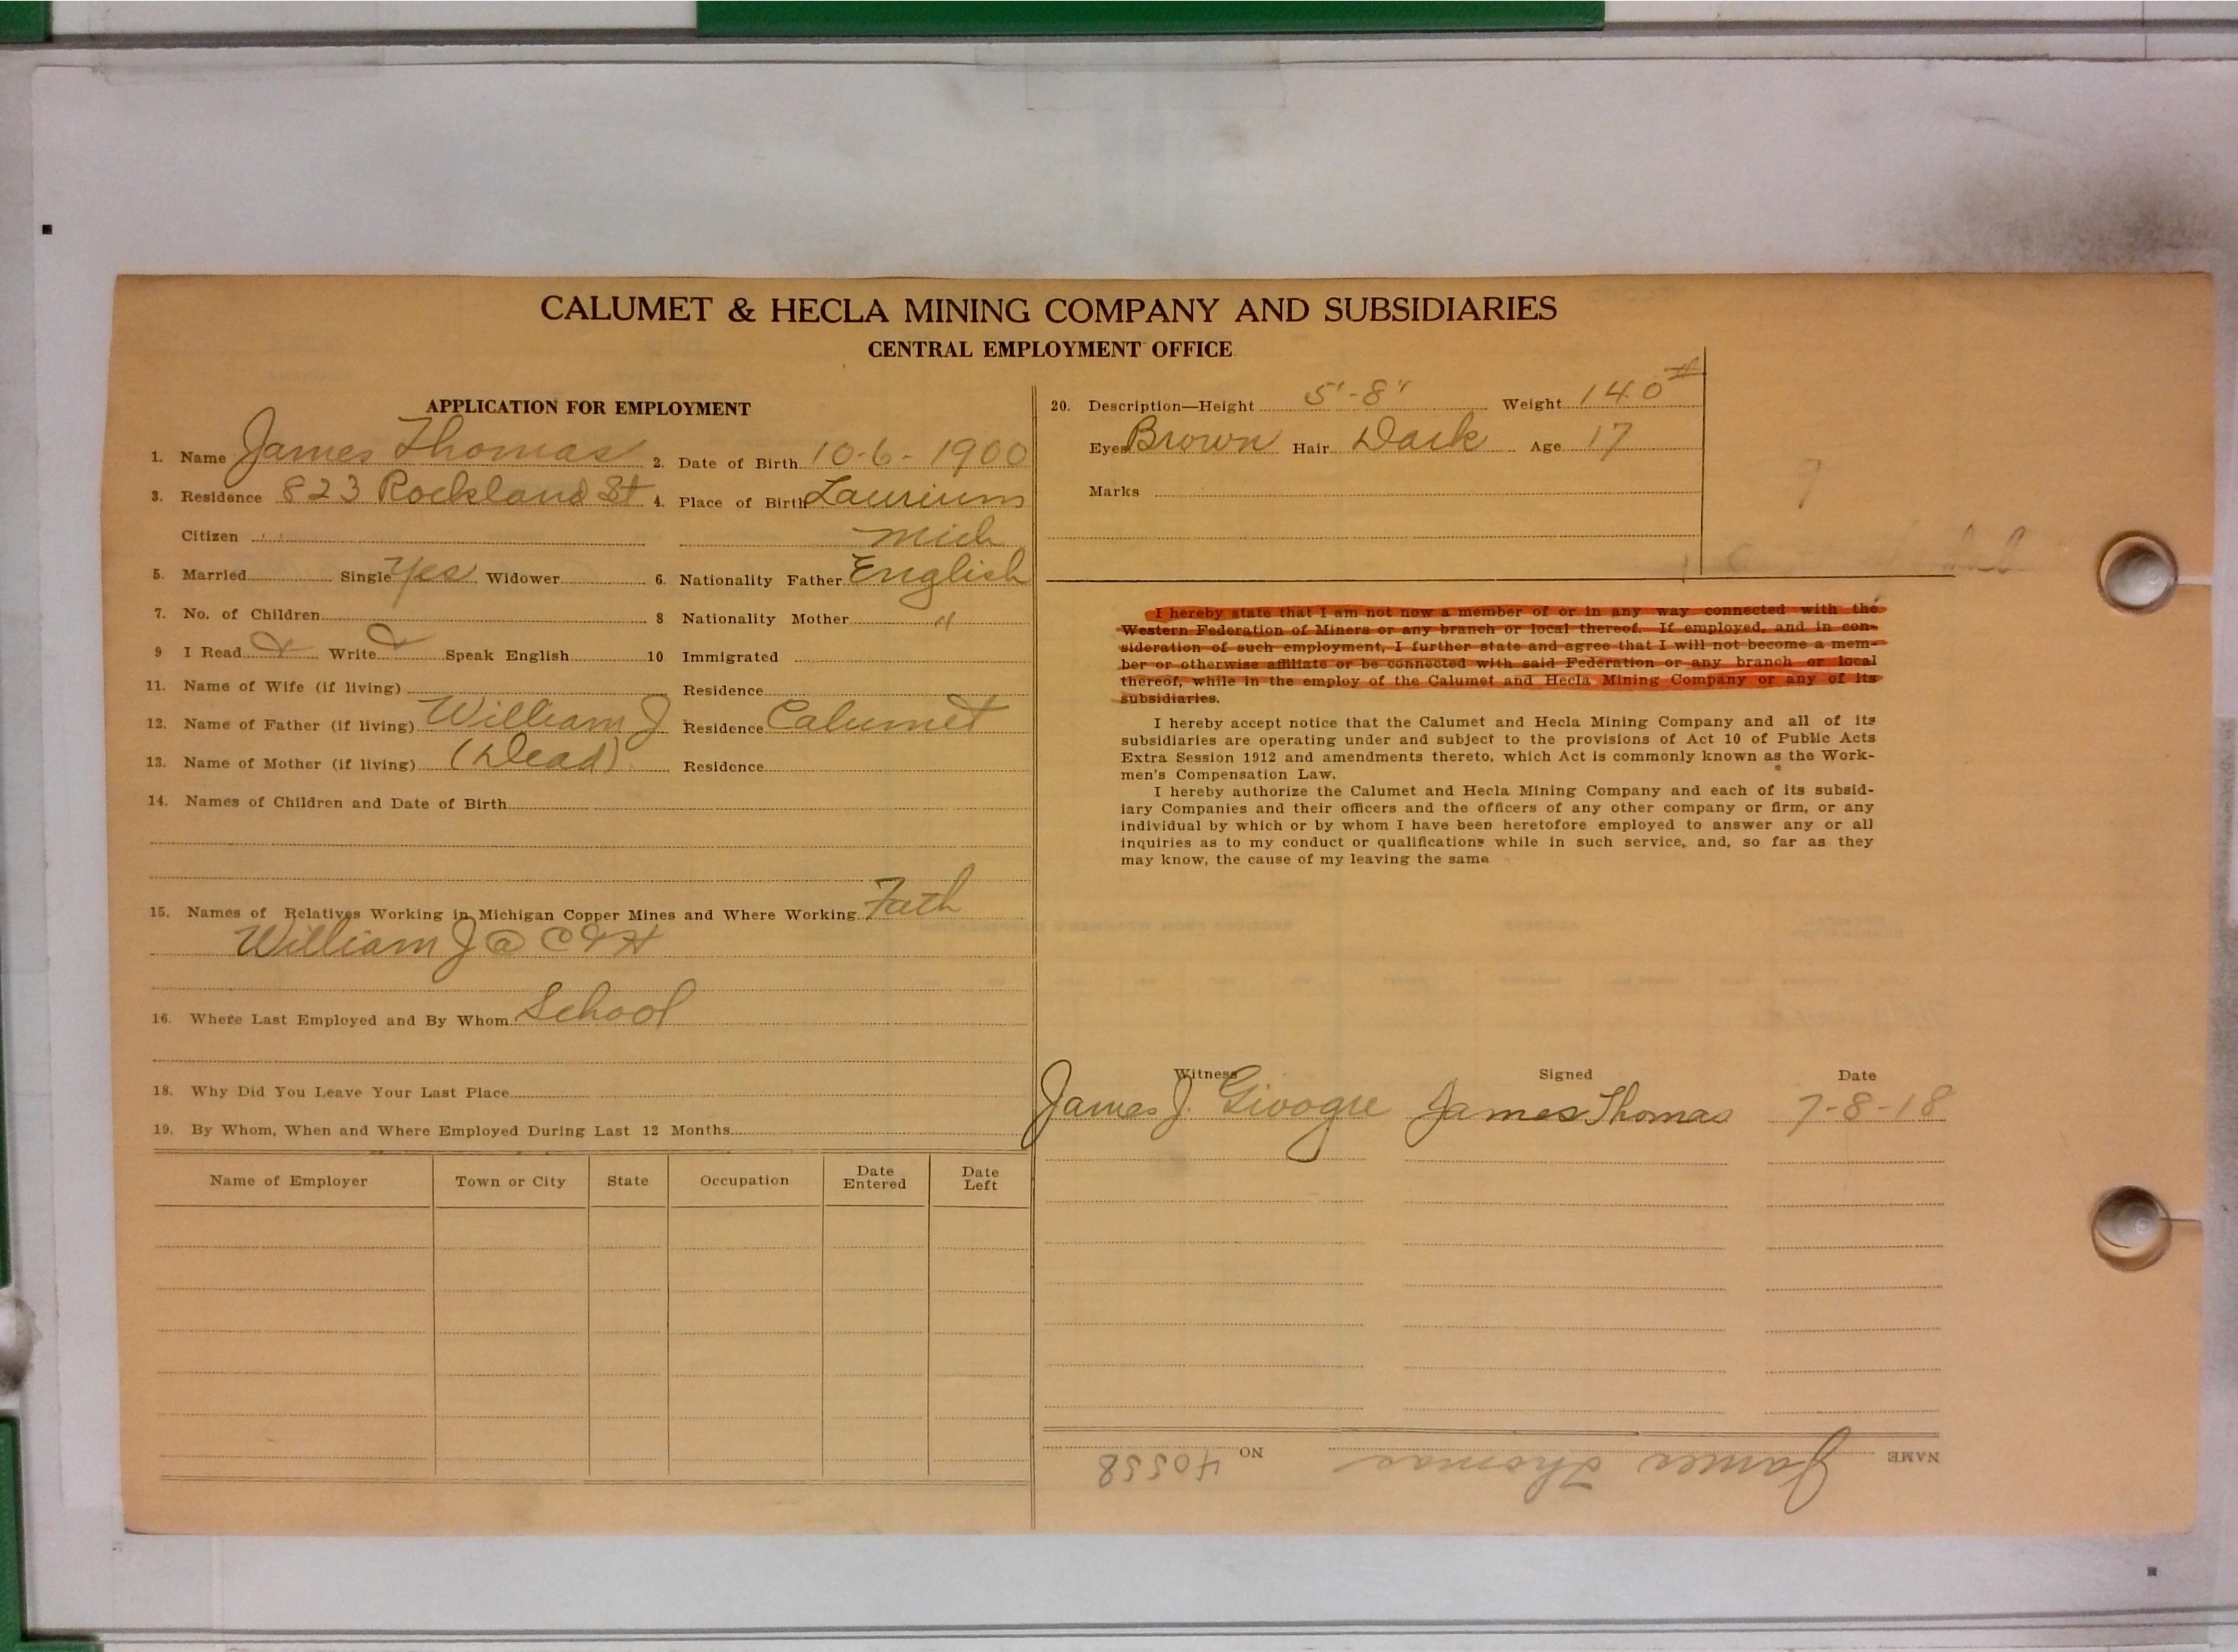 CALUMET & HECLA MINING COMPANY AND SUBSIDIARIES
CENTRAL EMPLOYMENT OFFICE
APPLICATION FOR EMPLOYMENT
1. Name James Thomas 2. Date of Birth 10-6-1900
3. Residence 823 Rockland St 4. Place of Birth Laurium
Citizen Mich
5. Married Single Yes Widower 6. Nationality Father English
7. No. of Children 8 Nationality Mother "
9 I Read Write Speak English 10 Immigrated
11. Name of Wife (if living) Residence
12. Name of Father (if living) William J Residence Calumet
13. Name of Mother (if living) (Dead) Residence
14. Names of Children and Date of Birth
15. Names of Relatives Working in Michigan Copper Mines and Where Working Fath
William J @ C & H
16. Where Last Employed and By Whom School
18. Why Did You Leave Your Last Place
19. By Whom, When and Where Employed During Last 12 Months
Name of Employer Town or City State Occupation Date Entered Date Left
20. Description—Height 5'-8" Weight 140#
Eyes Brown Hair Dark Age 17
Marks
I hereby state that I am not now a member of or in any way connected with the
Western Federation of Miners or any branch or local thereof. If employed, and in con-
sideration of such employment, I further state and agree that I will not become a mem-
ber or otherwise affiliate or be connected with said Federation or any branch or local
thereof, while in the employ of the Calumet and Hecla Mining Company or any of its
subsidiaries.
I hereby accept notice that the Calumet and Hecla Mining Company and all of its
subsidiaries are operating under and subject to the provisions of Act 10 of Public Acts
Extra Session 1912 and amendments thereto, which Act is commonly known as the Work-
men's Compensation Law.
I hereby authorize the Calumet and Hecla Mining Company and each of its subsid-
iary Companies and their officers and the officers of any other company or firm, or any
individual by which or by whom I have been heretofore employed to answer any or all
inquiries as to my conduct or qualifications while in such service, and, so far as they
may know, the cause of my leaving the same
Witness Signed Date
James J. James Thomas 7-8-18
NAME James Thomas NO 40558